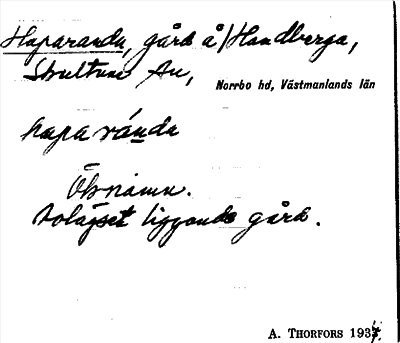 Haparanda, gård å/Handberga,
Skultuna sn,
Norrbo hd, Västmanlands län
hapa ránda
Öknamn.
Avlägset liggande gård.
A. THORFORS 1937.